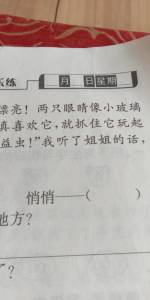 练
月 日 星期
漂亮！两只眼睛像小玻璃
真喜欢它，就抓住它玩起
益虫！”我听了姐姐的话，
悄悄——（ ）
地方？
？